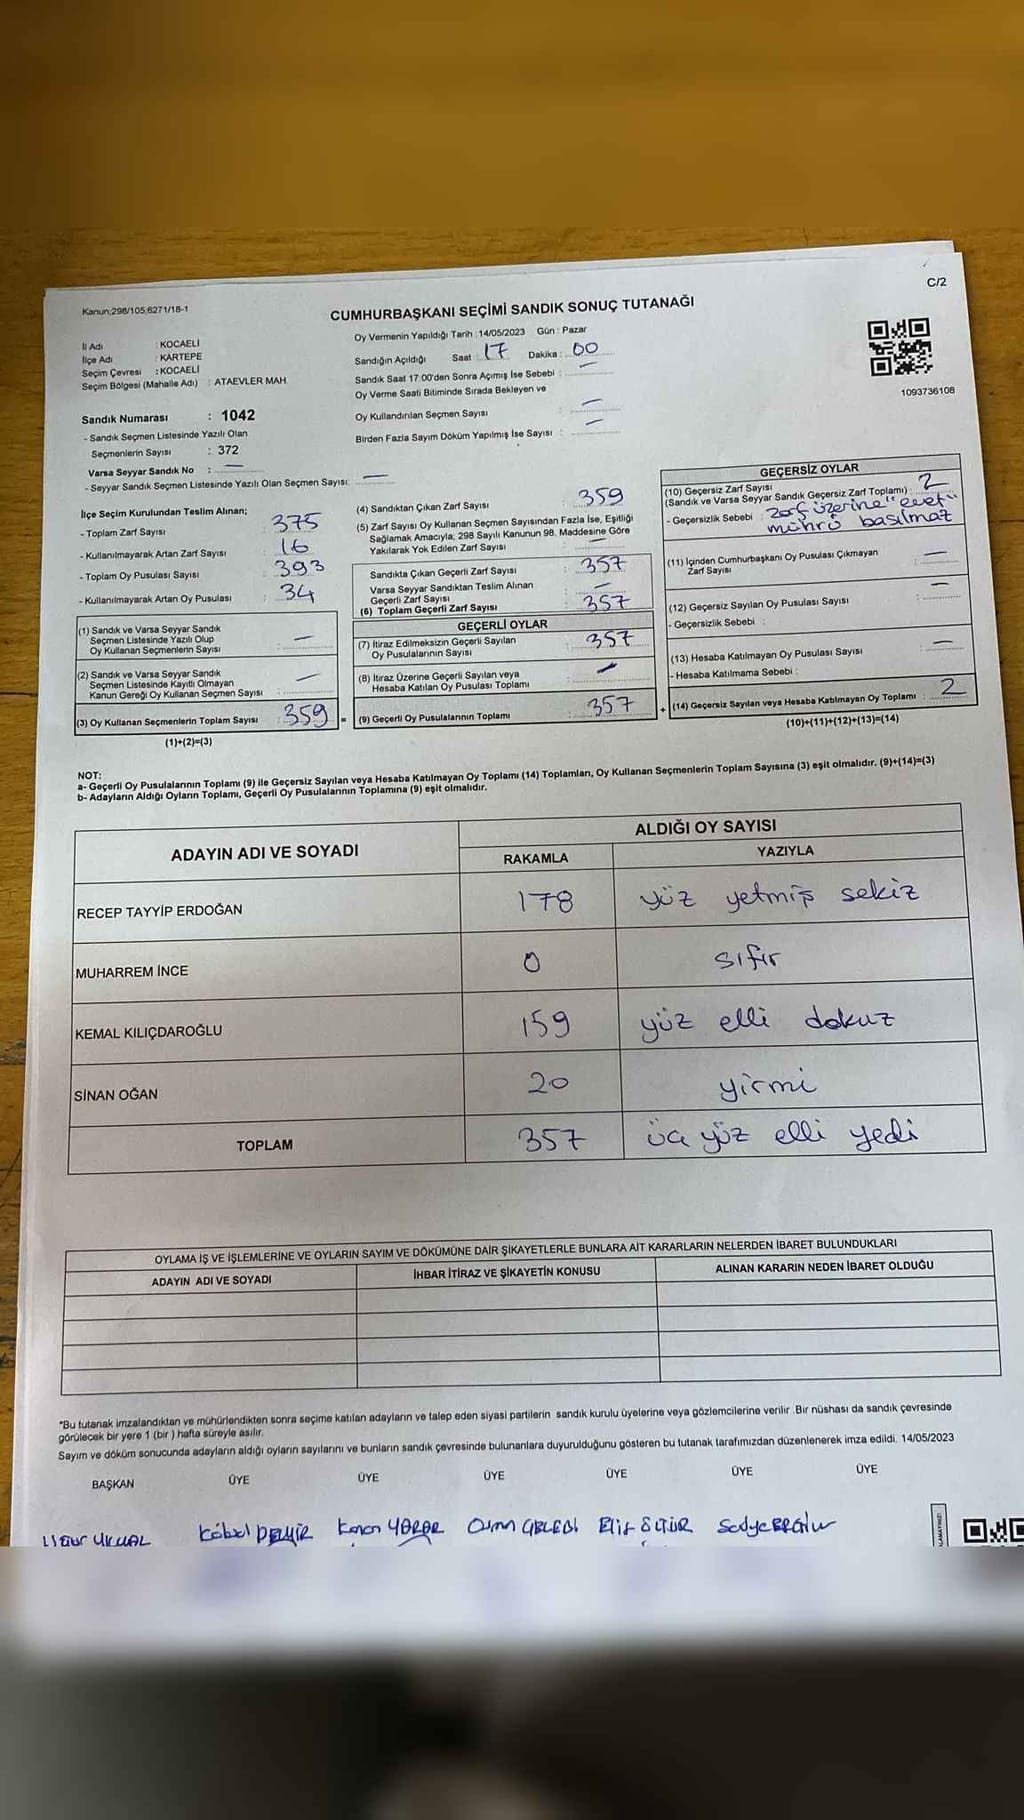 C/2
Kanun;298/105;6271/18-1
CUMHURBAŞKANI SEÇİMİ SANDIK SONUÇ TUTANAĞI
İl Adı : KOCAELİ
İlçe Adı : KARTEPE
Seçim Çevresi : KOCAELİ
Seçim Bölgesi (Mahalle Adı) : ATAEVLER MAH.
Sandık Numarası : 1042
- Sandık Seçmen Listesinde Yazılı Olan
Seçmenlerin Sayısı : 372
Varsa Seyyar Sandık No : —
- Seyyar Sandık Seçmen Listesinde Yazılı Olan Seçmen Sayısı: —
Oy Vermenin Yapıldığı Tarih : 14/05/2023 Gün : Pazar
Sandığın Açıldığı Saat : 17 Dakika : 00
Sandık Saat 17:00'den Sonra Açımış İse Sebebi : —
Oy Verme Saati Bitiminde Sırada Bekleyen ve
Oy Kullandırılan Seçmen Sayısı : —
Birden Fazla Sayım Döküm Yapılmış İse Sayısı : —
1093736108
İlçe Seçim Kurulundan Teslim Alınan;
- Toplam Zarf Sayısı : 375
- Kullanılmayarak Artan Zarf Sayısı : 16
- Toplam Oy Pusulası Sayısı : 393
- Kullanılmayarak Artan Oy Pusulası : 34
(1) Sandık ve Varsa Seyyar Sandık
Seçmen Listesinde Yazılı Olup
Oy Kullanan Seçmenlerin Sayısı : —
(2) Sandık ve Varsa Seyyar Sandık
Seçmen Listesinde Kayıtlı Olmayan
Kanun Gereği Oy Kullanan Seçmen Sayısı : —
(3) Oy Kullanan Seçmenlerin Toplam Sayısı : 359 =
(1)+(2)=(3)
(4) Sandıktan Çıkan Zarf Sayısı : 359
(5) Zarf Sayısı Oy Kullanan Seçmen Sayısından Fazla İse, Eşitliği
Sağlamak Amacıyla; 298 Sayılı Kanunun 98. Maddesine Göre
Yakılarak Yok Edilen Zarf Sayısı : —
Sandıkta Çıkan Geçerli Zarf Sayısı : 357
Varsa Seyyar Sandıktan Teslim Alınan
Geçerli Zarf Sayısı : —
(6) Toplam Geçerli Zarf Sayısı : 357
GEÇERLİ OYLAR
(7) İtiraz Edilmeksizin Geçerli Sayılan
Oy Pusulalarının Sayısı : 357
(8) İtiraz Üzerine Geçerli Sayılan veya
Hesaba Katılan Oy Pusulası Toplamı : —
(9) Geçerli Oy Pusulalarının Toplamı : 357 +
GEÇERSİZ OYLAR
(10) Geçersiz Zarf Sayısı
(Sandık ve Varsa Seyyar Sandık Geçersiz Zarf Toplamı) : 2
- Geçersizlik Sebebi : zarf üzerine "evet"
mührü basılmaz
(11) İçinden Cumhurbaşkanı Oy Pusulası Çıkmayan
Zarf Sayısı : —
(12) Geçersiz Sayılan Oy Pusulası Sayısı : —
- Geçersizlik Sebebi :
(13) Hesaba Katılmayan Oy Pusulası Sayısı : —
- Hesaba Katılmama Sebebi :
(14) Geçersiz Sayılan veya Hesaba Katılmayan Oy Toplamı : 2
(10)+(11)+(12)+(13)=(14)
NOT:
a- Geçerli Oy Pusulalarının Toplamı (9) ile Geçersiz Sayılan veya Hesaba Katılmayan Oy Toplamı (14) Toplamları, Oy Kullanan Seçmenlerin Toplam Sayısına (3) eşit olmalıdır. (9)+(14)=(3)
b- Adayların Aldığı Oyların Toplamı, Geçerli Oy Pusulalarının Toplamına (9) eşit olmalıdır.
ADAYIN ADI VE SOYADI ALDIĞI OY SAYISI
RAKAMLA YAZIYLA
RECEP TAYYİP ERDOĞAN 178 yüz yetmiş sekiz
MUHARREM İNCE 0 sıfır
KEMAL KILIÇDAROĞLU 159 yüz elli dokuz
SİNAN OĞAN 20 yirmi
TOPLAM 357 üç yüz elli yedi
OYLAMA İŞ VE İŞLEMLERİNE VE OYLARIN SAYIM VE DÖKÜMÜNE DAİR ŞİKAYETLERLE BUNLARA AİT KARARLARIN NELERDEN İBARET BULUNDUKLARI
ADAYIN ADI VE SOYADI İHBAR İTİRAZ VE ŞİKAYETİN KONUSU ALINAN KARARIN NEDEN İBARET OLDUĞU
*Bu tutanak imzalandıktan ve mühürlendikten sonra seçime katılan adayların ve talep eden siyasi partilerin sandık kurulu üyelerine veya gözlemcilerine verilir. Bir nüshası da sandık çevresinde
görülecek bir yere 1 (bir ) hafta süreyle asılır.
Sayım ve döküm sonucunda adayların aldığı oyların sayılarını ve bunların sandık çevresinde bulunanlara duyurulduğunu gösteren bu tutanak tarafımızdan düzenlenerek imza edildi. 14/05/2023
BAŞKAN ÜYE ÜYE ÜYE ÜYE ÜYE ÜYE
DEMİR Kenan YARAR Elif